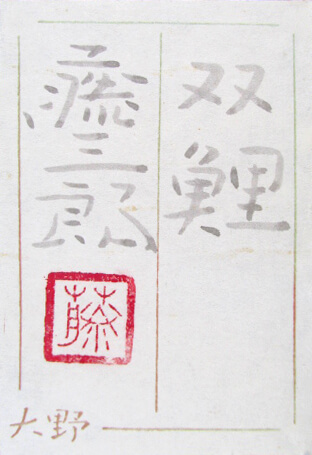 双鯉
三郎
藤
大野